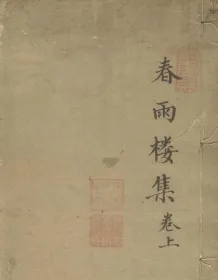 春雨楼集 卷上